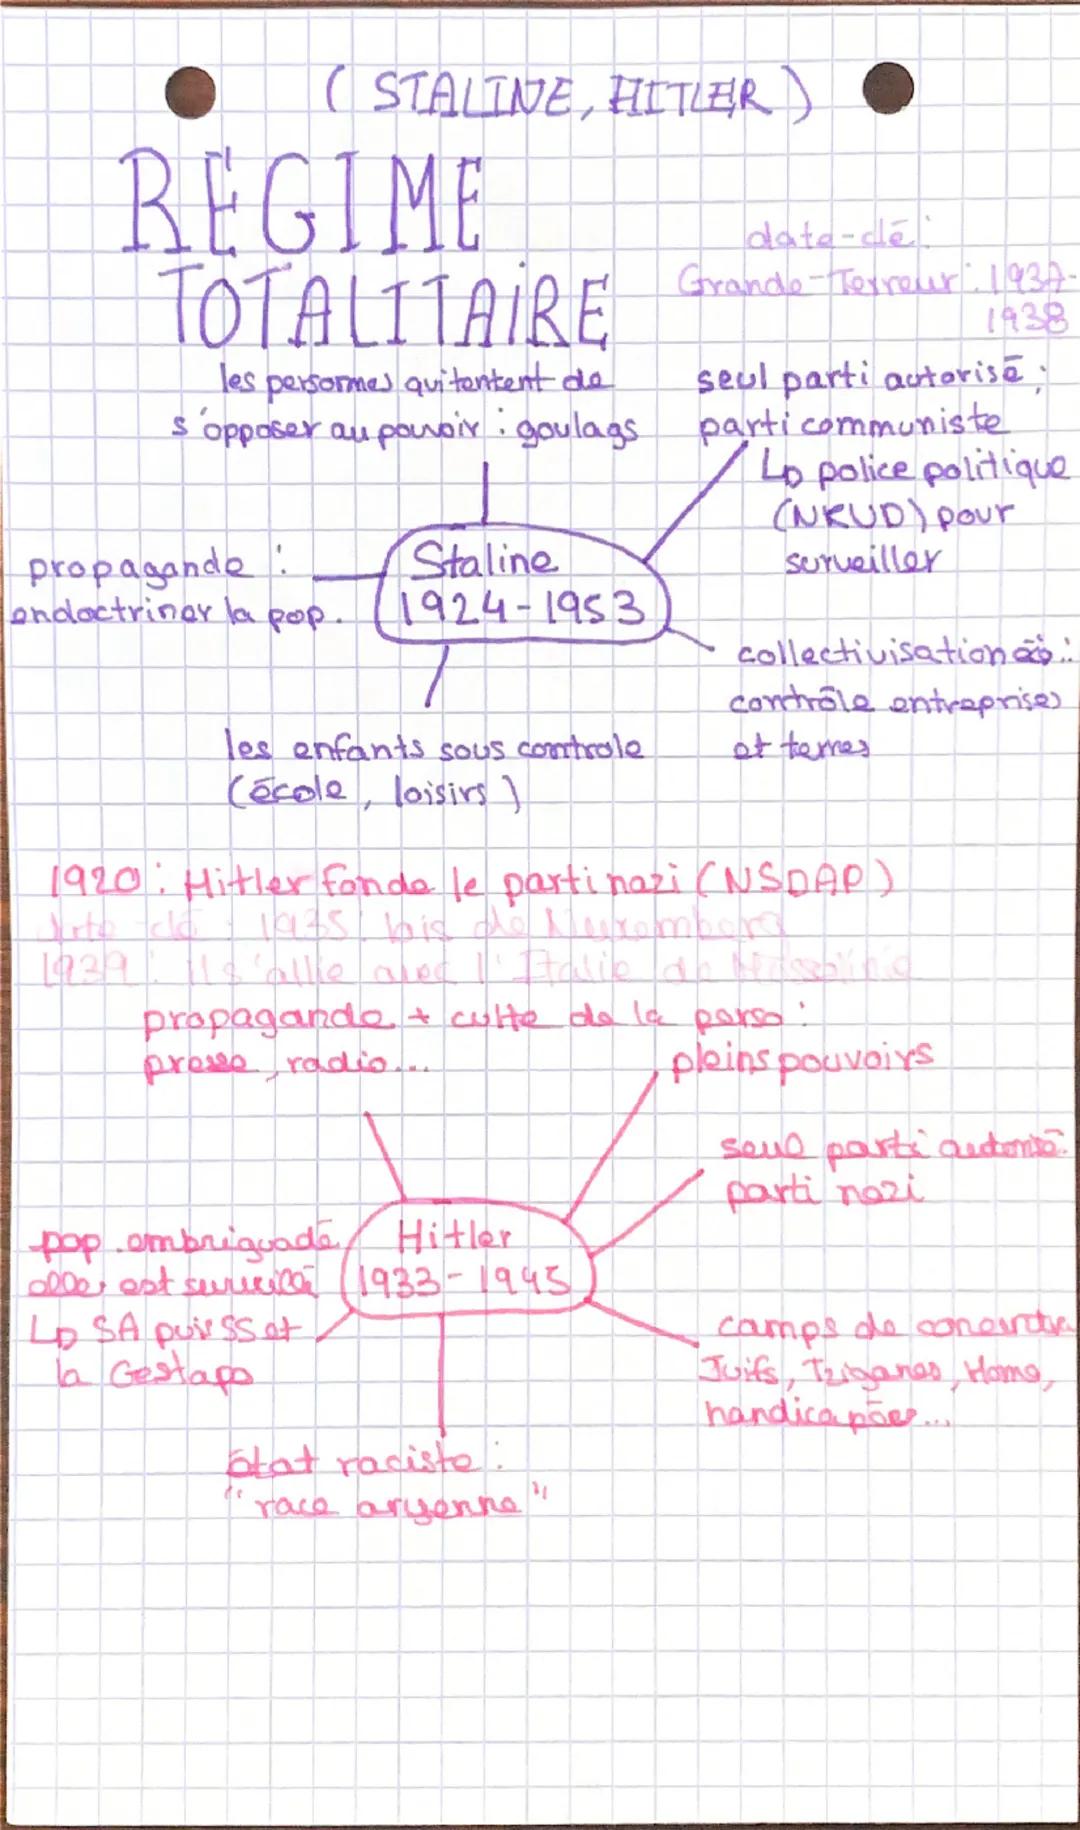 ( STALINE, HITLER )
RÉGIME
TOTALITAIRE
date-clé :
Grande-Terreur : 1937-
1938
les personnes qui tentent de
s'opposer au pouvoir : goulags
seul parti autorisé :
parti communiste
↳ police politique
(NKVD) pour
surveiller
propagande :
endoctriner la pop.
Staline
1924-1953
collectivisation :
contrôle entreprises
et terres
les enfants sous controle
(école, loisirs)
1920 : Hitler fonde le parti nazi (NSDAP)
date clé : 1935 : lois de Nuremberg
1939 : Il s'allie avec l'Italie de
propagande + culte de la perso :
presse, radio...
pleins pouvoirs
seul parti autorisé :
parti nazi
pop. embriguadé,
elle est surveillé
↳ SA puis SS et
la Gestapo
Hitler
1933-1945
camps de
Juifs, Tziganes, Homo,
handicapées...
état raciste :
"race aryenne"